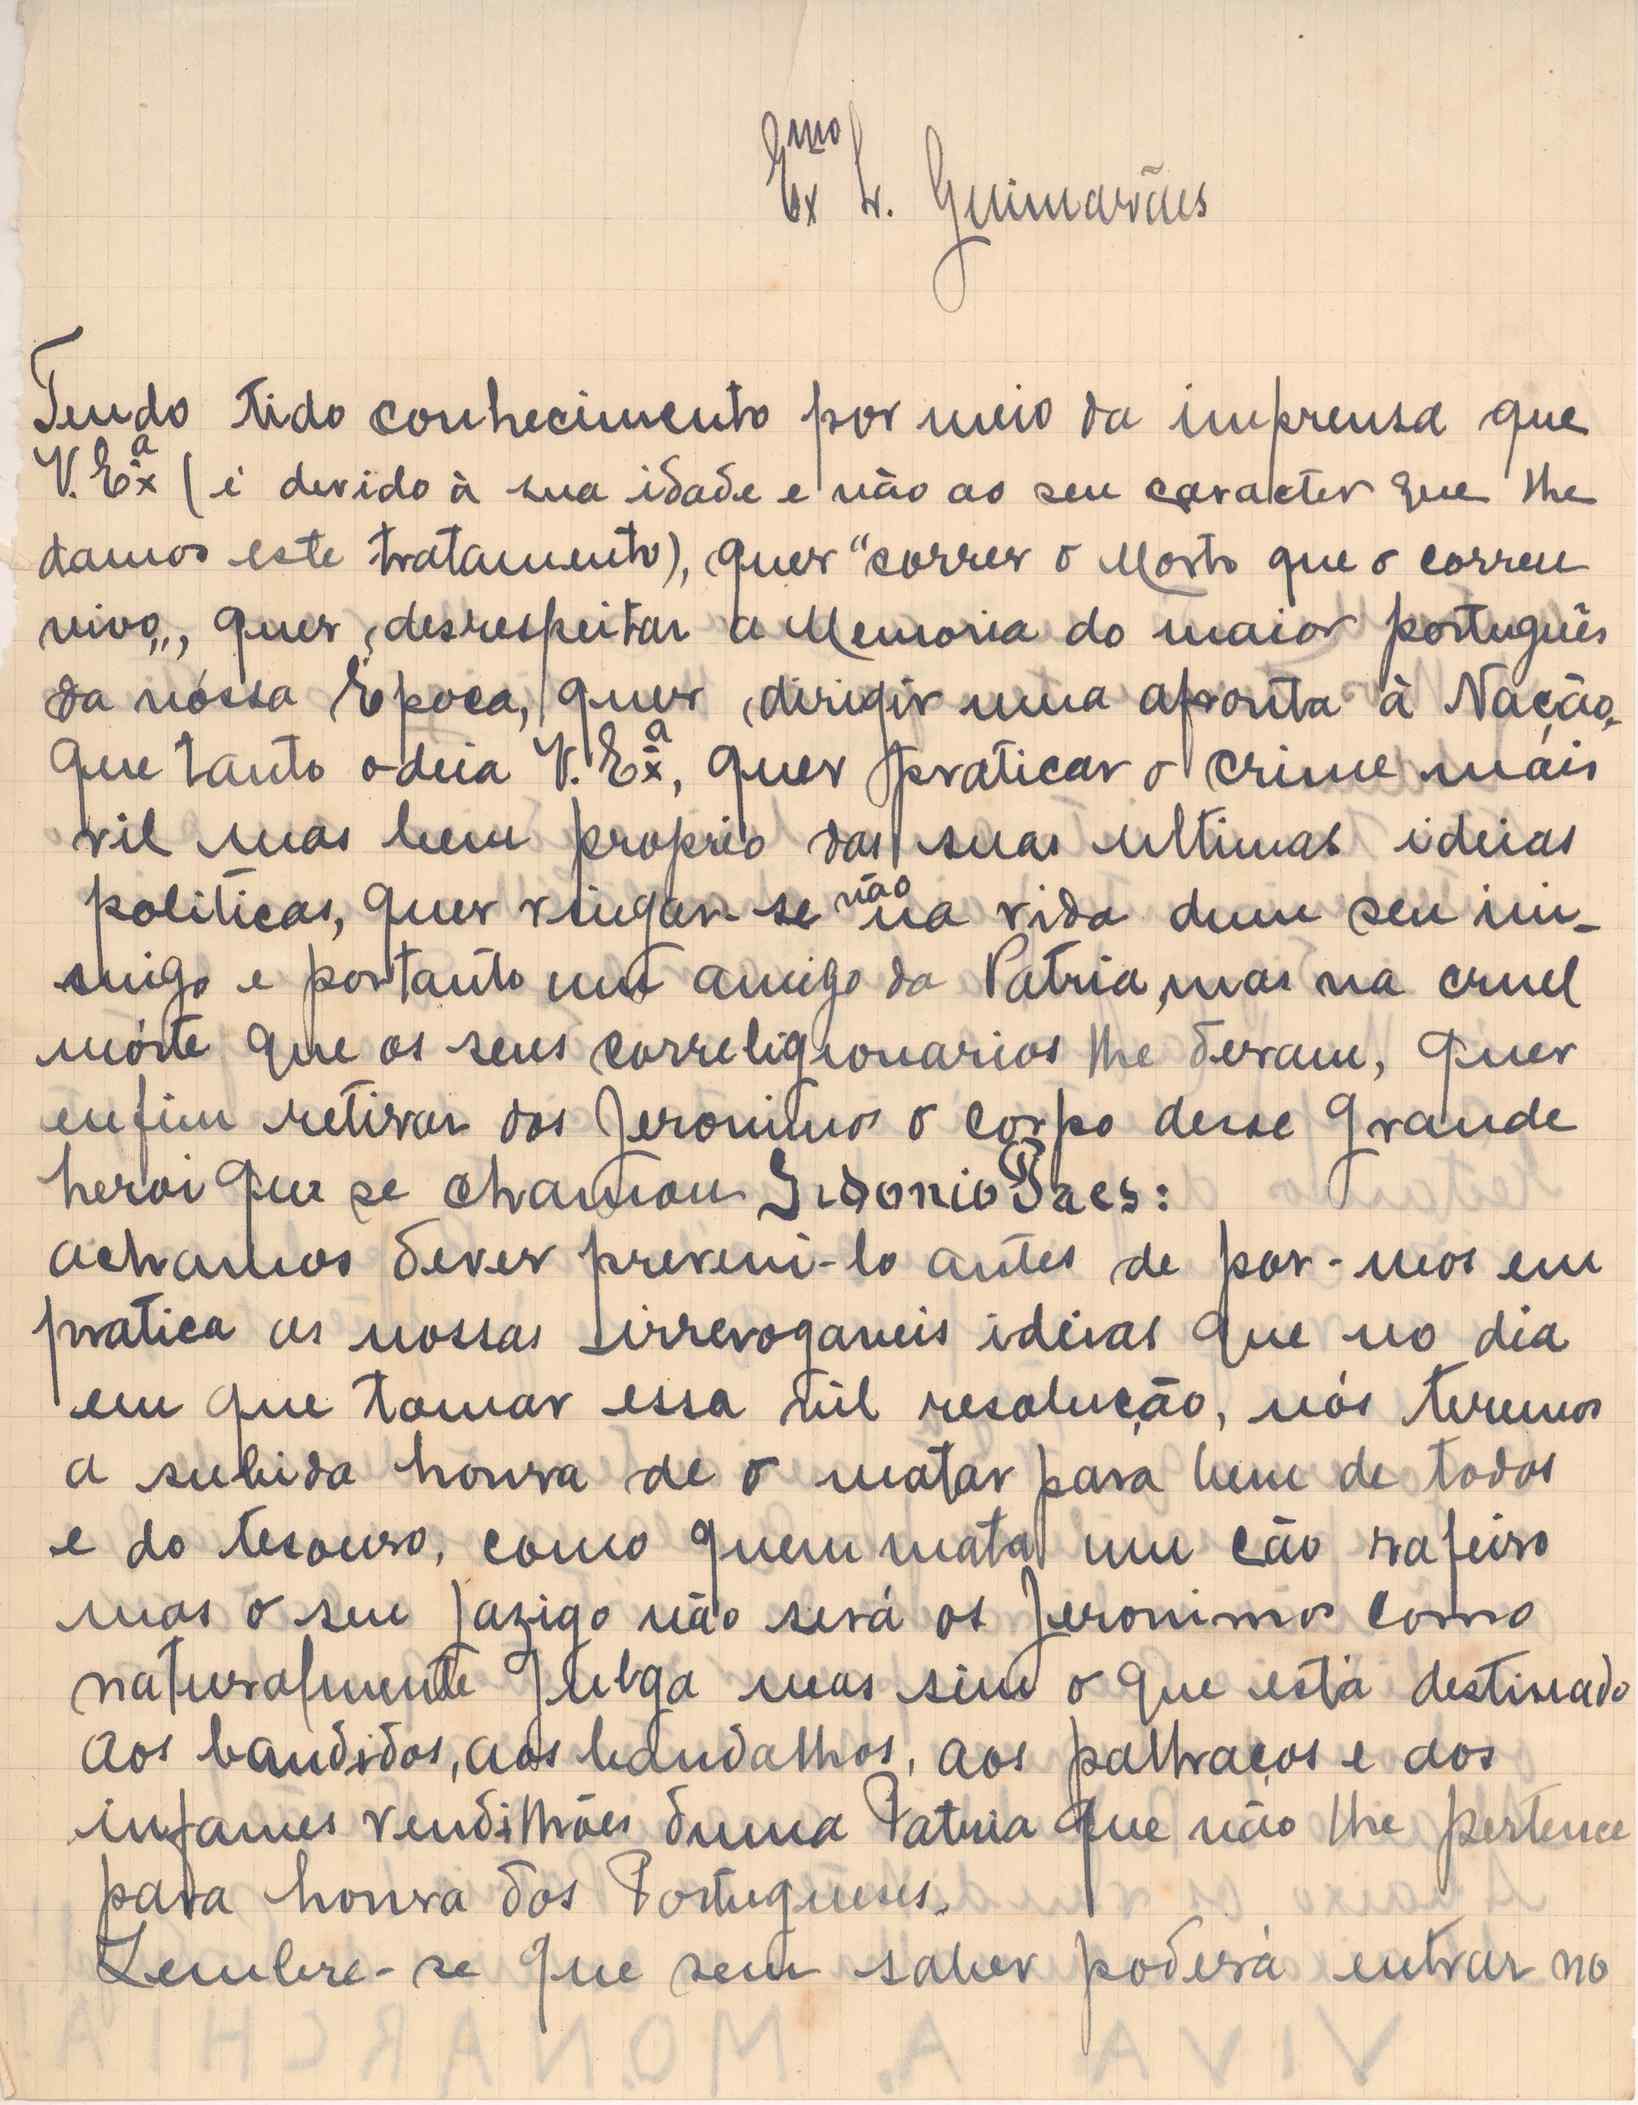 Exmo Sr. Guimarães
Tendo tido conhecimento por meio da imprensa que
V. Exa (é devido à sua idade e não ao seu caracter que lhe
damos este tratamento), quer "correr o Morto que o correu
vivo,,, quer, desrespeitar a Memoria do maior português
da nóssa Epoca, quer, dirigir uma afronta à Nação,
que tanto odeia V. Exa, quer praticar o crime máis
vil mas bem proprio das suas ultimas ideias
politicas, quer vingar-se não na vida dum seu ini-
migo e portanto um amigo da Patria, mas na cruel
mórte que os seus correligionarios lhe deram, quer
enfim retirar dos Jeronimos o corpo desse grande
heroi que se chamou Sidonio Paes:
achamos dever preveni-lo antes de por-mos em
pratica as nossas irrevogaveis ideias que no dia
em que tomar essa vil resolução, nós teremos
a subida honra de o matar para bem de todos
e do tesouro, como quem mata um cão rafeiro
mas o seu jazigo não será os Jeronimos como
naturalmente julga mas sim o que está destinado
aos bandidos, aos bandalhos, aos palhaços e aos
infames vendilhões duma Patria que não lhe pertence
para honra dos Portugueses.
Lembre-se que sem saber poderá entrar no
VIVA A MONARCHIA